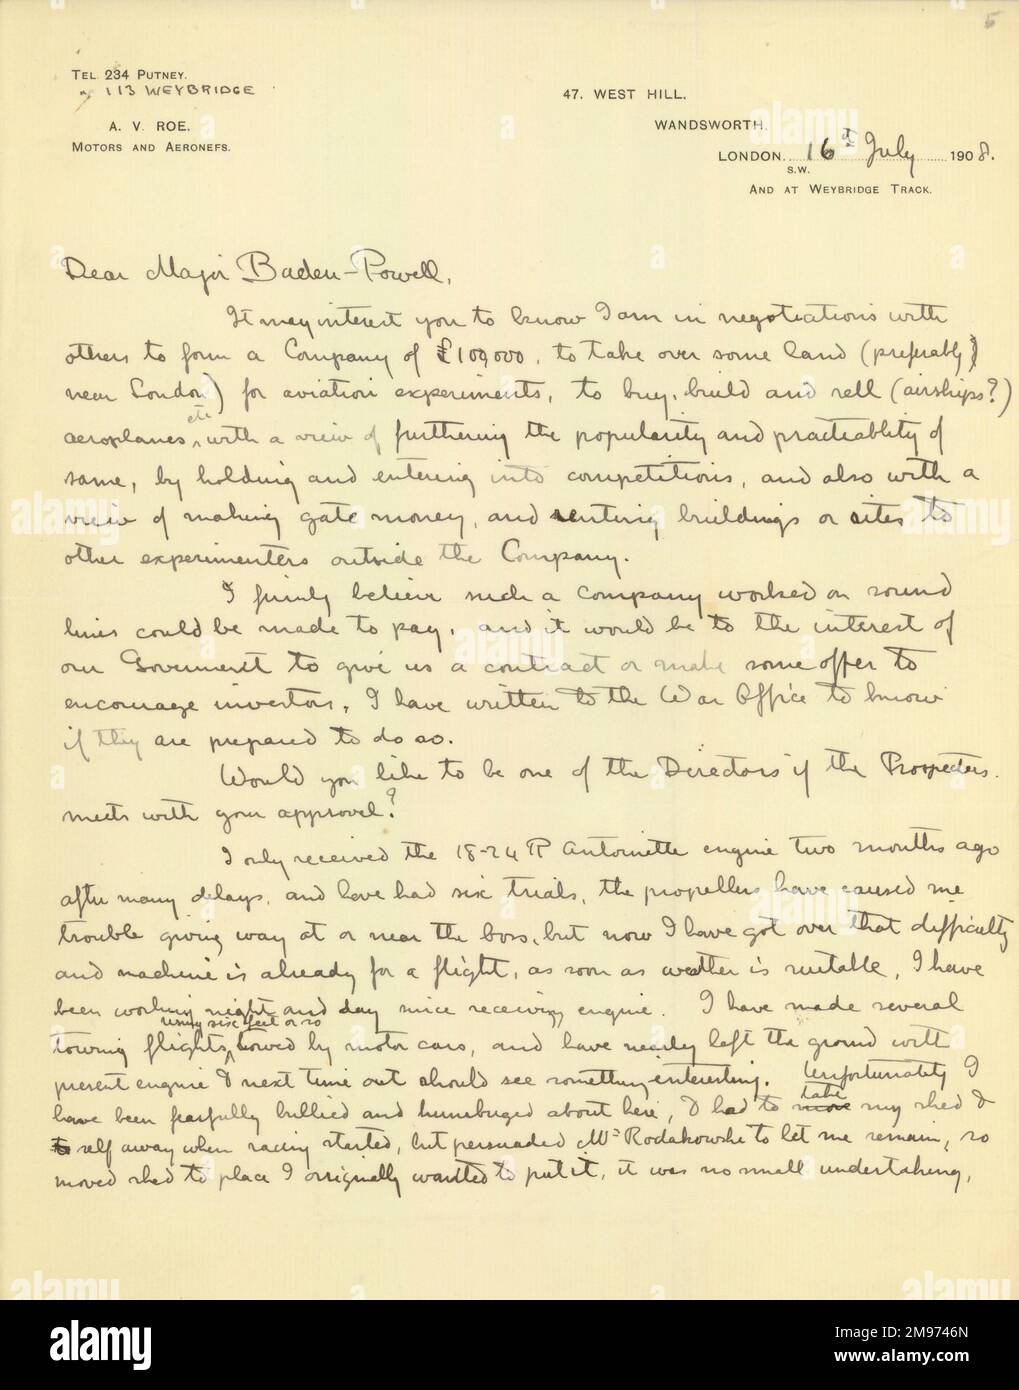 5
TEL 234 PUTNEY.
" 113 WEYBRIDGE
A. V. ROE.
MOTORS AND AERONEFS.
47. WEST HILL.
WANDSWORTH.
LONDON. 16th July 1908.
S.W.
AND AT WEYBRIDGE TRACK.
Dear Major Baden-Powell,
It may interest you to know I am in negotiations with
others to form a Company of £100,000, to take over some land (preferably
near London) for aviation experiments, to buy, build and sell (airships?)
aeroplanes etc. with a view of furthering the popularity and practiablity of
same, by holding and entering into competitions, and also with a
view of making gate money, and renting buildings or sites to
other experimenters outside the Company.
I firmly believe such a company worked on sound
lines could be made to pay, and it would be to the interest of
our Goverment to give us a contract or make some offer to
encourage investors, I have written to the War Office to know
if they are prepared to do so.
Would you like to be one of the Directors if the Prospectus
meets with your approval?
I only received the 18-24 HP Antoinette engine two months ago
after many delays, and have had six trials, the propellers have caused me
trouble giving way at or near the boss, but now I have got over that difficulty
and machine is already for a flight, as soon as weather is suitable, I have
been working night and day since receiving engine. I have made several
rising six feet or so
towing flights, towed by motor cars, and have nearly left the ground with
present engine & next time out should see something interesting. Unfortunately I
have been fearfully bullied and humbuged about here, I had to take my shed &
self away when racing started, but persuaded Mr Rodakowski to let me remain, so
moved shed to place I originally wanted to put it, it was no small undertaking,
alamy
Image ID: 2M9746N
www.alamy.com